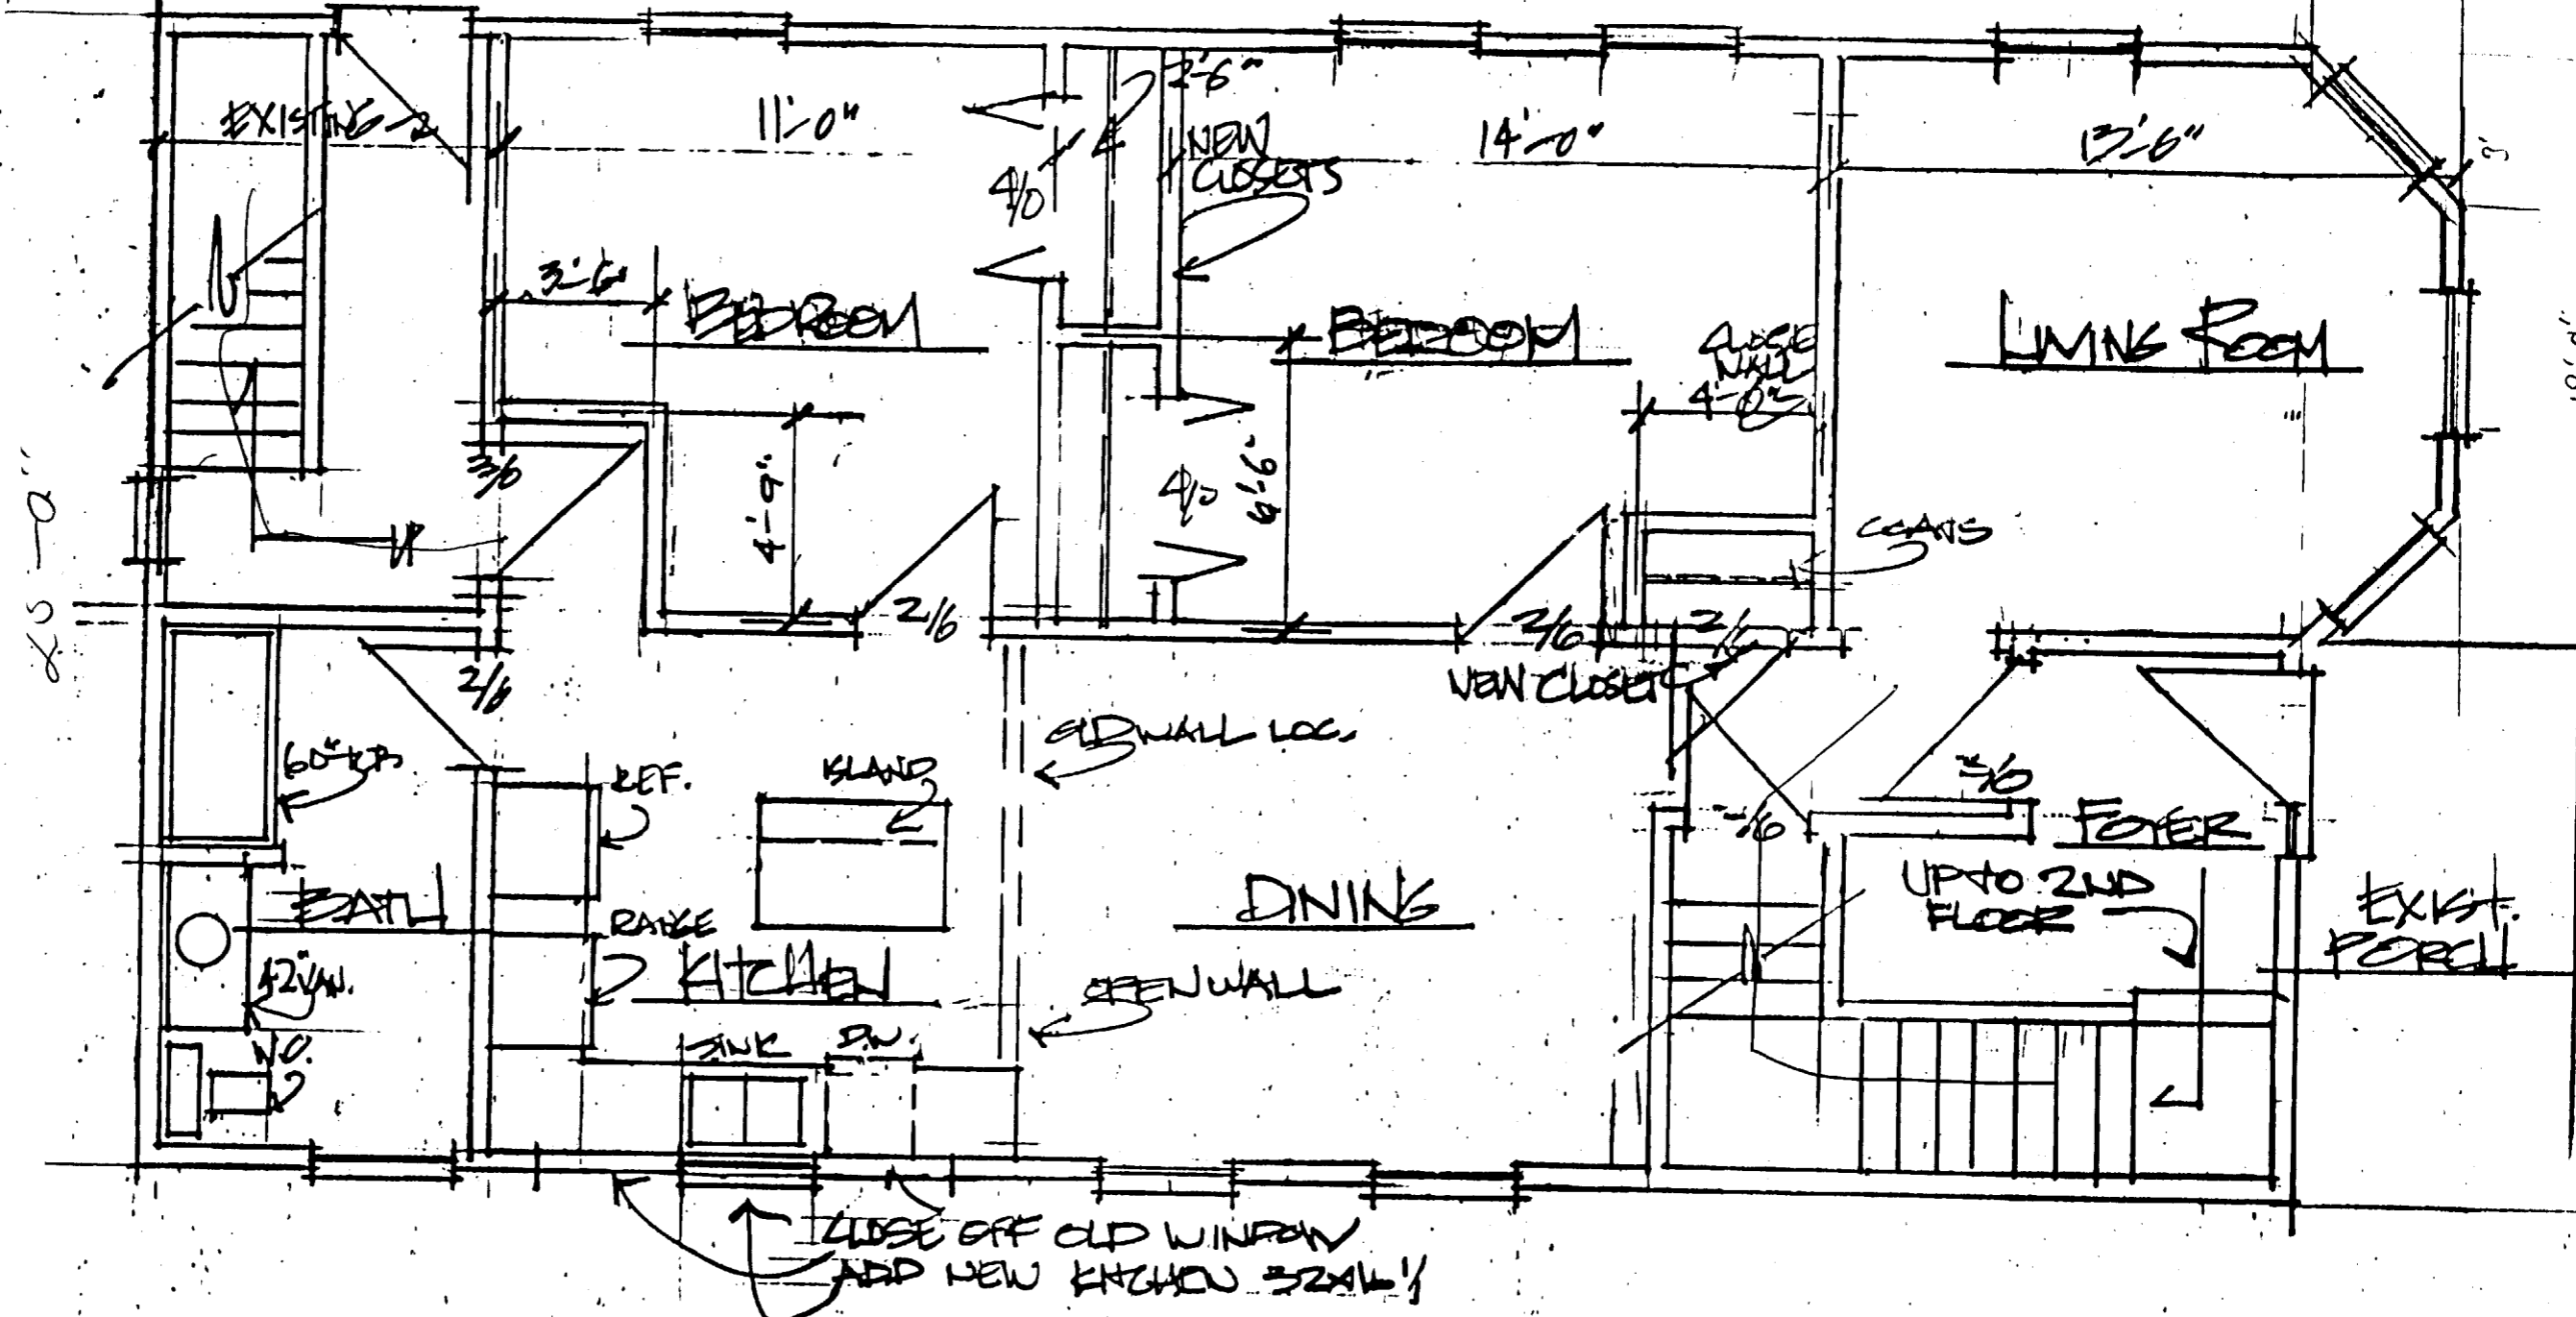 EXISTING
11'-0"
2'-6"
NEW
CLOSETS
14'-0"
13'-6"
4/0
3'-6"
BEDROOM
BEDROOM
CLOSE
WALL
4'-0"
LIVING ROOM
3/0
4'-9"
4/0
6'-6"
COATS
2/6
2/6
2/6
2/6
NEW CLOSET
OLD WALL LOC.
60" TUB
REF.
ISLAND
3/0
FOYER
BATH
RANGE
DINING
UP TO 2ND
FLOOR
EXIST.
PORCH
42" VAN.
KITCHEN
OPEN WALL
W.C.
SINK
D.W.
CLOSE OFF OLD WINDOW
ADD NEW KITCHEN